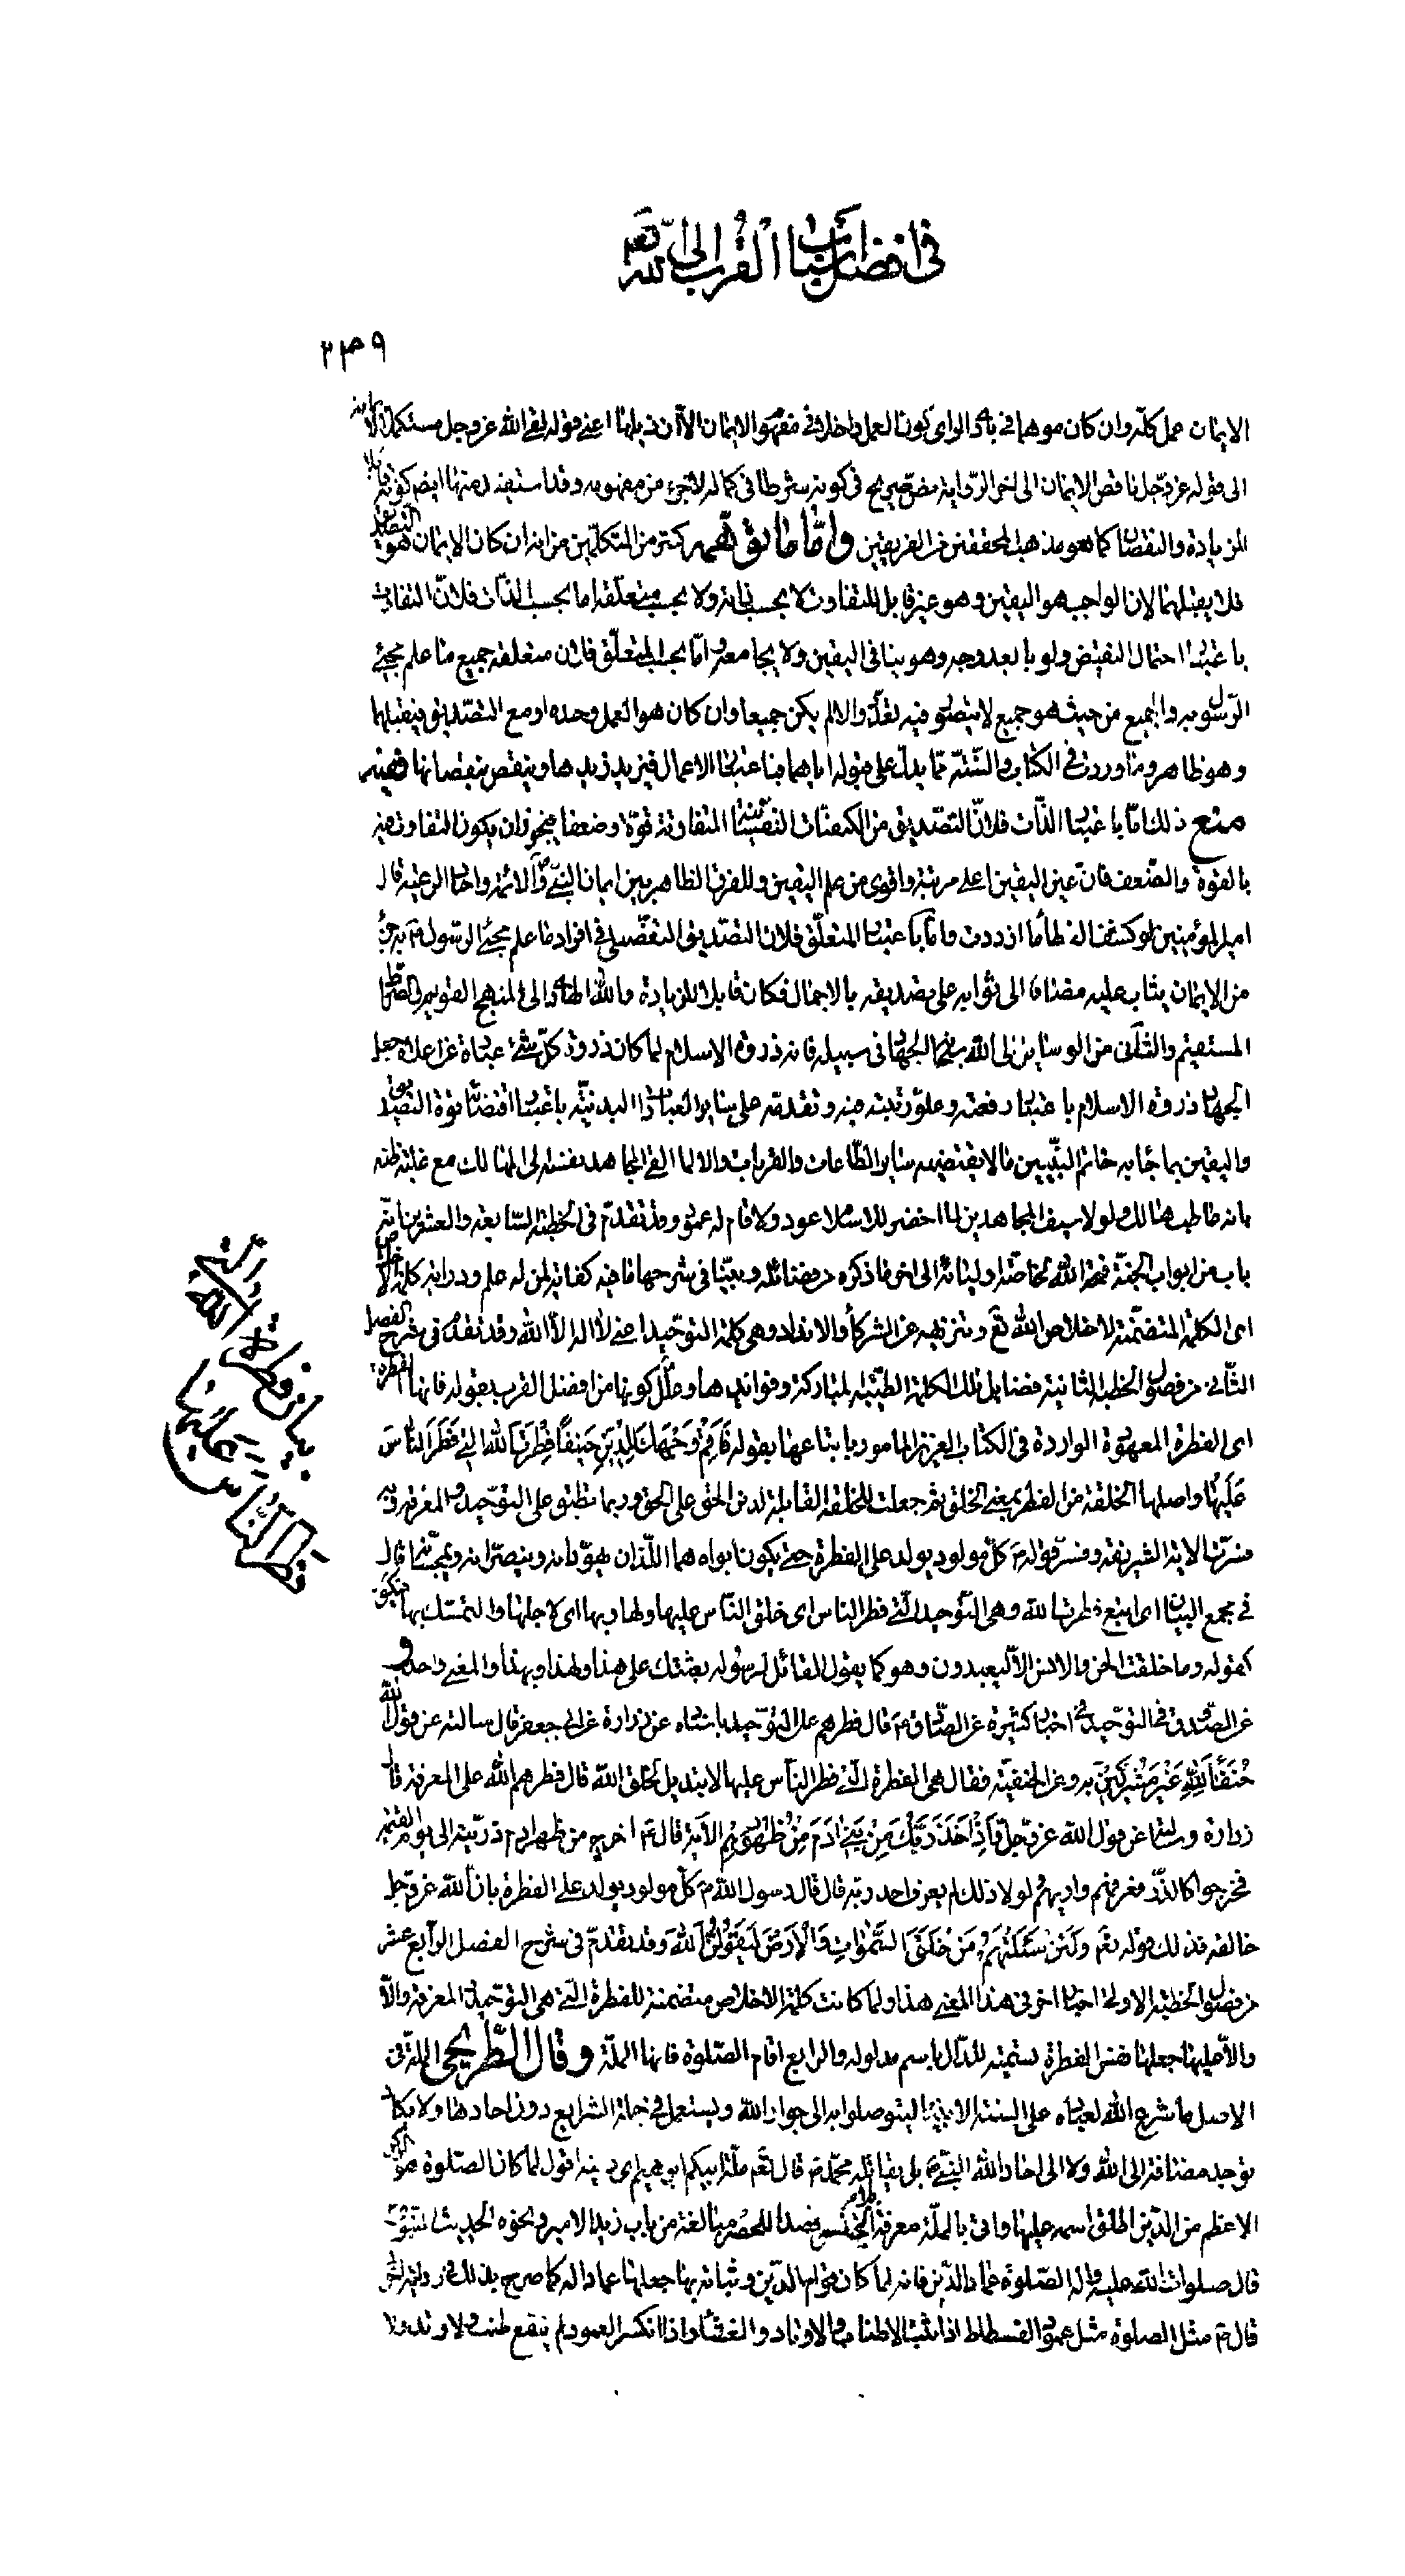 في افضل اسباب القرب الى الله تعه
٢٣٩
الايمان عمل كلّه وان كان موهما في بادى الراى كون العمل داخلا في مفهوم الايمان الّا ان ذيلها اعنى قوله لقى الله عز وجل مستكملا لايمانه
الى قوله عز وجل ناقص الايمان الى اخر الرّواية نصّ صريح في كونه شرطا في كماله لا جزء من مفهومه وقد استفيد منها ايضا كونه قابلا
للزيادة والنقصان كما هو مذهب المحققين من الفريقين وامّا ما توهّمه كثير من المتكلّمين من انه ان كان الايمان هو التصديق
فلا يقبلهما لان الواجب هو اليقين وهو غير قابل للتفاوت لا بحسب ذاته ولا بحسب متعلّقه اما بحسب الذّات فلانّ التفاوت
باعتبار احتمال النقيض ولو بابعد وجه وهو ينافى اليقين ولا يجامعه وامّا بحسب المتعلّق فلان متعلقه جميع ما علم مجئ
الرّسول به والجميع من حيث هو جميع لا يتصوّر فيه تعدّد والا لم يكن جميعا وان كان هو العمل وحده او مع التصديق فيقبلهما
وهو ظاهر وما ورد في الكتاب والسّنّة ممّا يدلّ على قبوله اياهما فباعتبار الاعمال فيزيد بزيدها وينقص بنقصانها ففيه
منع ذلك امّا باعتبار الذّات فلانّ التصديق من الكيفيّات النفسانيّة المتفاوتة قوّة وضعفا فيجوز ان يكون التفاوت فيه
بالقوة والضّعف فان عين اليقين اعلى مرتبة واقوى من علم اليقين وللفرق الظاهر بين ايمان النبىّ ص والائمة واحاد الرعية قال
امير المؤمنين لو كشف الغطا ما ازددت وامّا باعتبار المتعلّق فلان التصديق التفصيلى في افراد ما علم مجئ الرسول ص به جزء
من الايمان يثاب عليه مضافا الى ثوابه على تصديقه بالاجمال فكان قابلا للزيادة والله الهادى الى المنهج القويم والصّراط
المستقيم والثّانى من الوسايل الى الله سبحانه الجهاد في سبيله فانه ذروة الاسلام لما كان ذروة كلّ شئ عبارة عن اعلاه جعل
الجهاد ذروة الاسلام باعتبار رفعته وعلوّ رتبته فيه وتقدمه على ساير العبادات البدنيّة باعتبار اقتضائه قوة التصديق
واليقين بما جاء به خاتم النبيّين ما لا يقتضيه ساير الطّاعات والقربات والا لما القى المجاهد بنفسه الى المهالك مع غلبة ظنه
بانه هالك ولولا سيف المجاهدين لما اخضر للاسلام عود ولا قام له عمود وقد تقدّم في الخطبة السّابعة والعشرين انّه
باب من ابواب الجنّة فتحه الله لخاصّة اوليائه الى اخر ما ذكره من فضائله وبيّنا في شرحها ما فيه كفاية لمن له علم ودراية كلمة الاخلاص
اى الكلمة المتضمّنة لاخلاص الله تع وتنزيهه عن الشركاء والانداد وهى كلمة التوحيد اعنى لا اله الّا الله وقد تقدّم في شرح الفصل
الثّانى من فصول الخطبة الثانية فضايل تلك الكلمة الطيّبة المباركة وفوايدها وعلّل كونها من افضل القرب بقوله فانها الفطرة
اى الفطرة المعهودة الواردة في الكتاب العزيز المامور باتباعها بقوله فَاَقِمْ وَجْهَكَ لِلدّينِ حَنيفًا فِطْرَتَ اللهِ الَّتى فَطَرَ النّاسَ
عَلَيْها واصلها الخلقة من الفطر بمعنى الخلق ثم جعلت للخلقة القابلة لدين الحق على الحق وربما تطلق على التوحيد والمعرفة وبه
فسّرت الاية الشريفة وفسّر قوله ص كلّ مولود يولد على الفطرة حتى يكون ابواه هما اللّذان يهوّدانه وينصّرانه ويمجّسانه قال
في مجمع البيان اى اتبع فطرة الله وهى التّوحيد الّتى فطر الناس اى خلق النّاس عليها ولها وبها اى لاجلها والتمسّك بها فيكون
كقوله وما خلقت الجنّ والانس الّا ليعبدون وهو كما يقول القائل لرسوله بعثتك على هذا ولهذا وبهذا والمعنى واحد و
عن الصّدوق في التوحيد في اخبار كثيرة عن الصّادق ع قال فطرهم على التّوحيد باسناده عن زرارة عن ابى جعفر قال سالته عن قول الله
حُنَفاءَ لِلّهِ غَيْرَ مُشْرِكينَ به وعن الحنفيّة فقال هى الفطرة الّتى فطر النّاس عليها لا تبديل لخلق الله قال فطرهم الله على المعرفة قال
زرارة وسالته عن قول الله عزّوجلّ وَاِذْ اَخَذَ رَبُّكَ مِنْ بَنى ادَمَ مِنْ ظُهُورِهِمْ الآية قال ع اخرج من ظهر ادم ذرّيته الى يوم القيمة
فخرجوا كالذّر فعرفهم واريهم ولولا ذلك لم يعرف احد ربّه قال قال رسول الله ص كلّ مولود يولد على الفطرة بانّ الله عزّوجلّ
خالقه فذلك قوله تع وَلَئِنْ سَئَلْتَهُمْ مَنْ خَلَقَ السَّمواتِ وَالْاَرْضَ لَيَقُولُنَّ اللّهُ وقد تقدّم في شرح الفصل الرّابع عشر
من فصول الخطبة الاولى اخبار اخر في هذا المعنى هذا ولما كانت كلمة الاخلاص متضمنة للفطرة الّتى هى التوحيد والمعرفة والّا
والّا عليها جعلها نفس الفطرة تسمية للدّال باسم مدلوله والرابع اقام الصّلوة فانها الملّة وقال الطّريحى الملّة في
الاصل ما شرع الله لعباده على السنة الانبياء ليتوصلوا به الى جوار الله ويستعمل في جملة الشرايع دون احادها ولا يكاد
يوجد مضافة الى الله ولا الى احاد امّة النّبىّ ص بل يقال ملّة محمّد ص قال تع ملّة ابيكم ابرهيم اى دينه اقول لما كان الصّلوة هو الركن
الاعظم من الدّين اطلق اسمه عليها واتى بالملّة معرفة بلام الجنس قصدا للحصر مبالغة من باب زيد الامير ونحوه الحديث النبوىّ
قال صلوات الله عليه واله الصّلوة عماد الدّين فانه لما كان قوام الدّين وثباته بها جعلها عمادا له كما صرح بذلك في رواية اخرى
قال ع مثل الصلوة مثل عمود الفسطاط اذا ثبت الاطناب والاوتاد والغشاء واذا انكسر العمود لم ينفع طنب ولا وتد ولا
بيان فطرة الله الّتى
فَطَرَ النّاسَ عَلَيْها